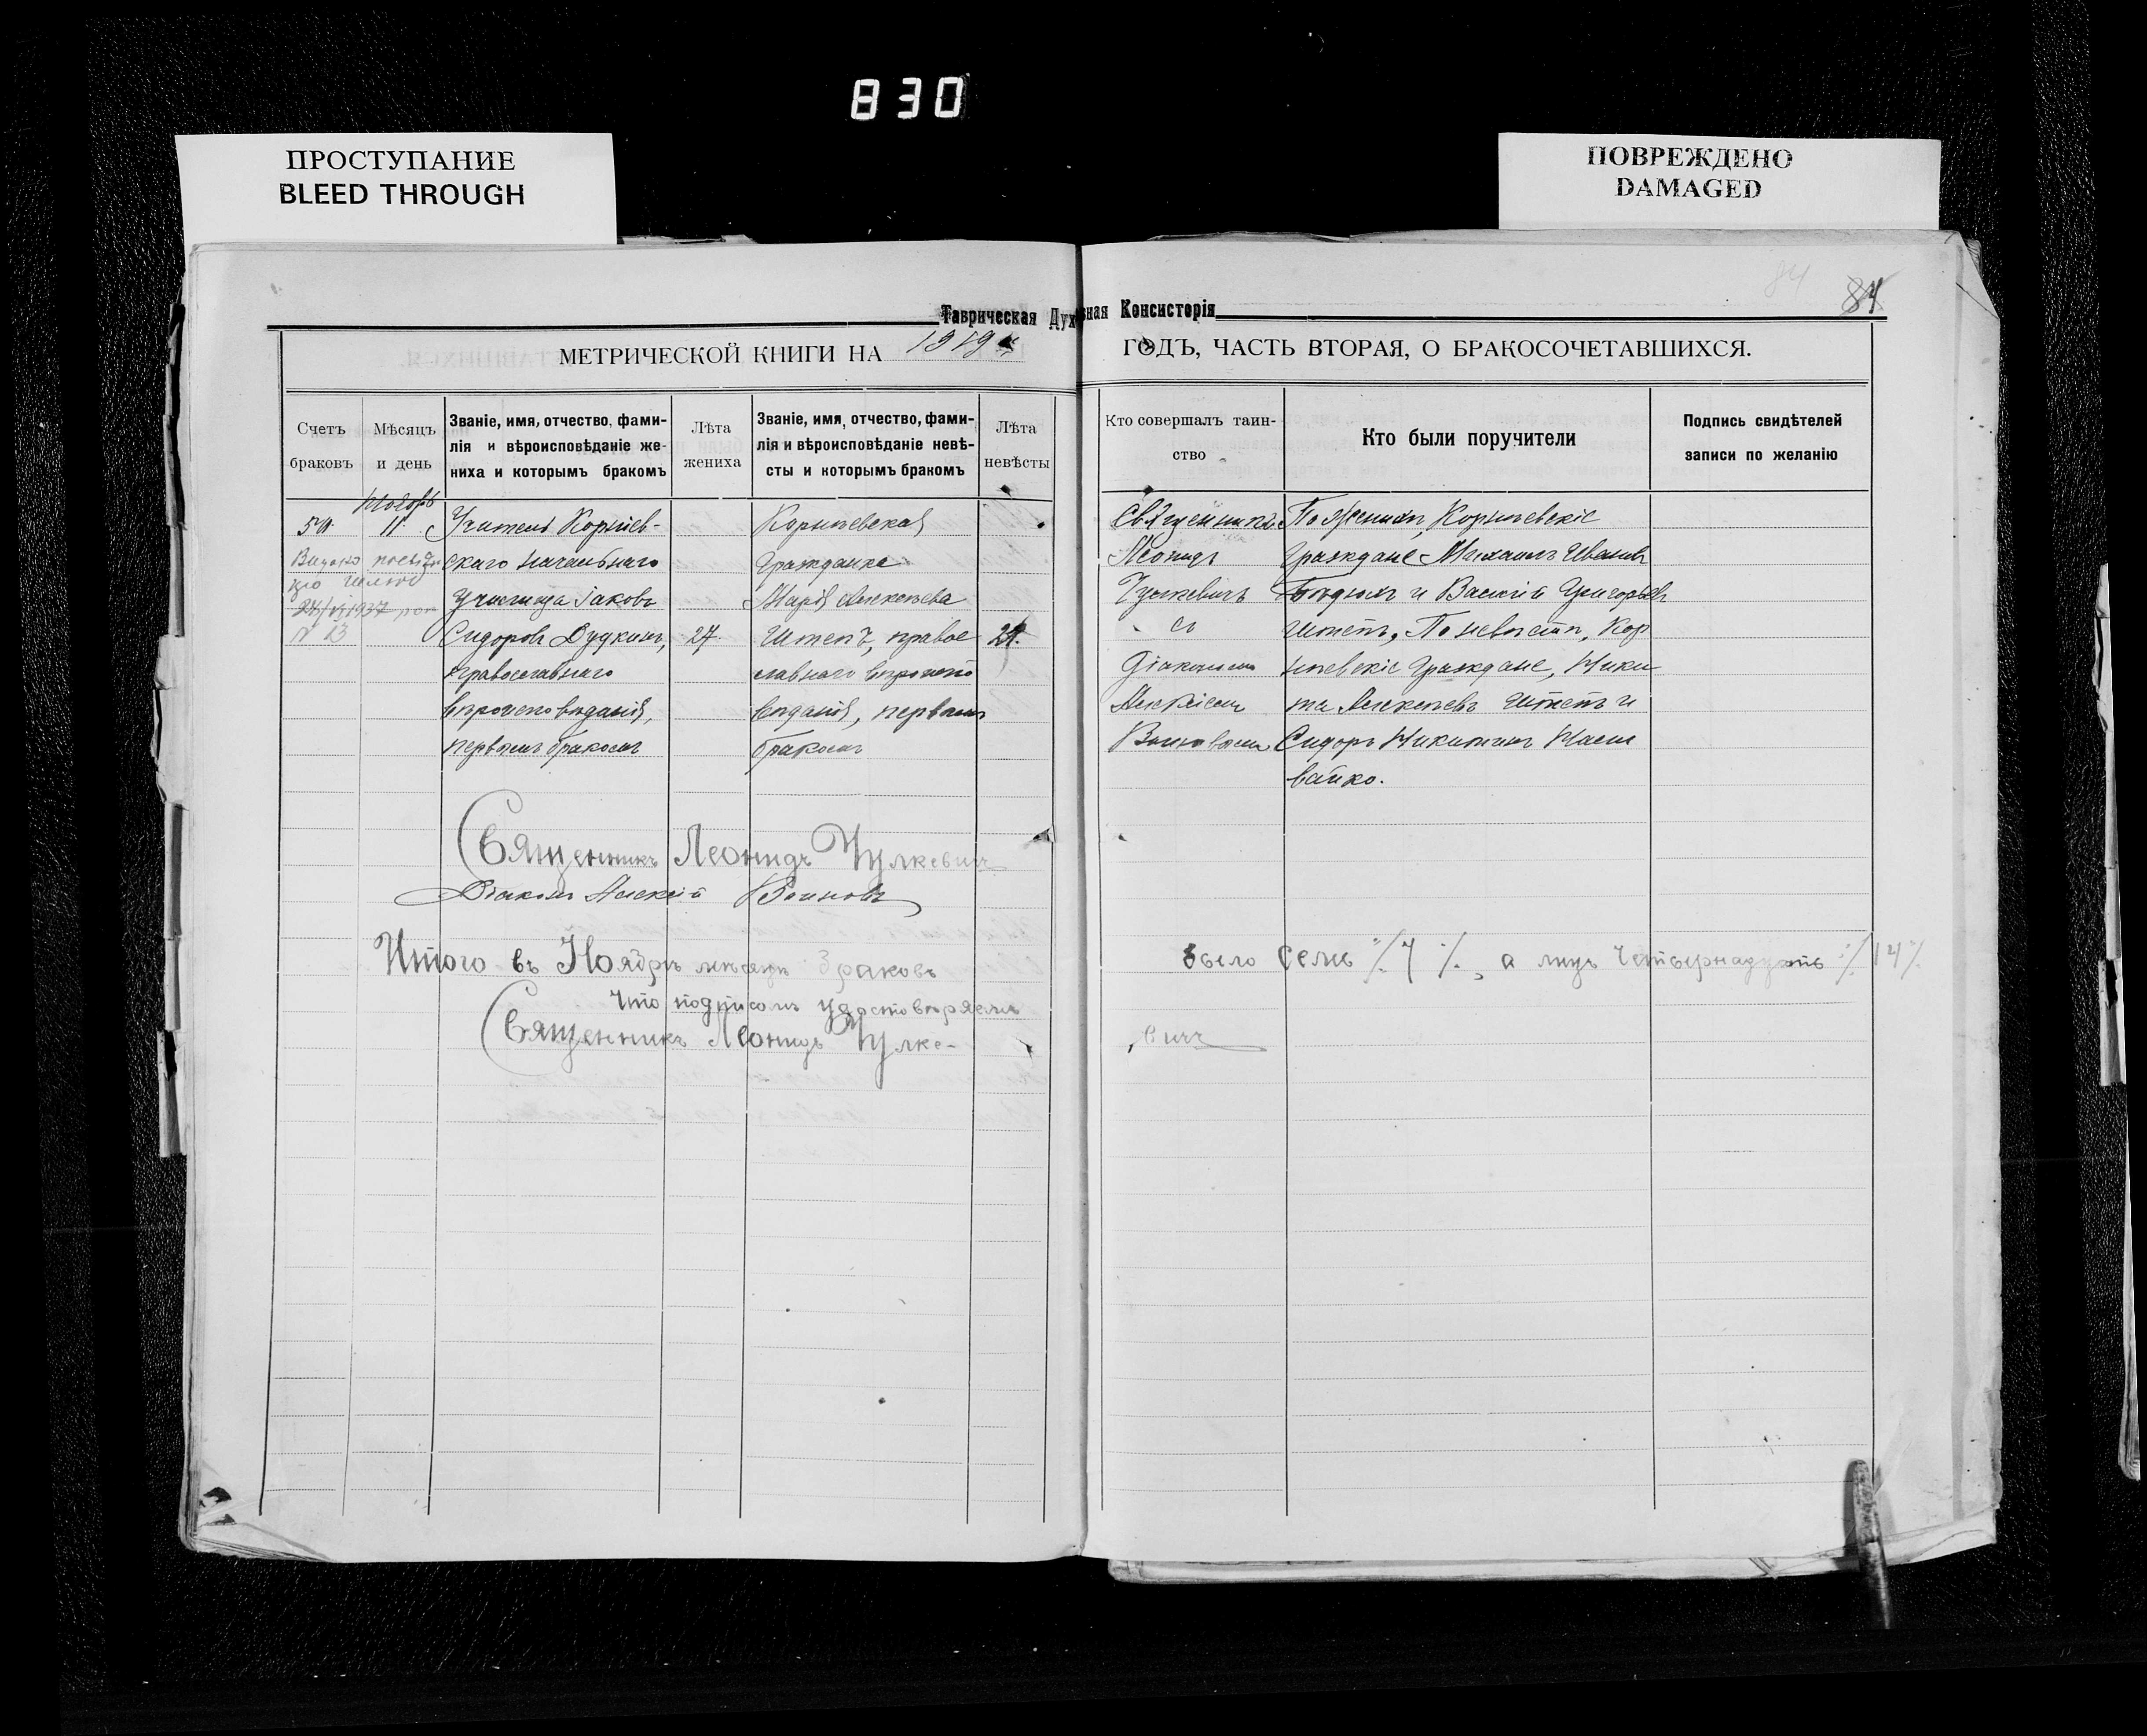 830
ПРОСТУПАНИЕ
BLEED THROUGH
ПОВРЕЖДЕНО
DAMAGED
84
84
Таврическая Духовная Консисторія
МЕТРИЧЕСКОЙ КНИГИ НА 1919 ГОДЪ, ЧАСТЬ ВТОРАЯ, О БРАКОСОЧЕТАВШИХСЯ.
Счетъ
браковъ
Мѣсяцъ
и день
Званіе, имя, отчество, фами-
лія и вѣроисповѣданіе же-
ниха и которымъ бракомъ
Лѣта
жениха
Званіе, имя, отчество, фами-
лія и вѣроисповѣданіе невѣ-
сты и которымъ бракомъ
Лѣта
невѣсты
Кто совершалъ таин-
ство
Кто были поручители
Подпись свидѣтелей
записи по желанію
Ноябрь
11
24/VI 1937
N 23
Учитель Корнѣев-
скаго начальнаго
училища Іаковъ
Сидоровъ Дудкинъ,
православнаго
вѣроисповѣданія,
первымъ бракомъ
27.
Корнѣевская
Гражданка
Марія Алексѣева
Штепъ, право
славнаго вѣроиспо
вѣданія, первымъ
бракомъ
Священникъ
Леонидъ
Чулкевичъ
съ
Діакономъ
Алексіемъ
Воиновымъ
По женихѣ, Корнѣевскіе
Граждане Михаилъ Ивановъ
и Василій Григорьевъ
Штепъ, По невѣстѣ, Кор
нѣевскіе Граждане, Ники
та Алексѣевъ Штепъ и
Сидоръ Никитинъ Нали
вайко.
Священникъ Леонидъ Чулкевичъ
Діаконъ Алексій Воиновъ
Итого въ Ноябрѣ мѣсяцѣ браковъ было семь ./. 7 ./. , а лицъ четырнадцать ./. 14 ./.
Что подписомъ удостовѣряемъ
Священникъ Леонидъ Чулке-
вичъ